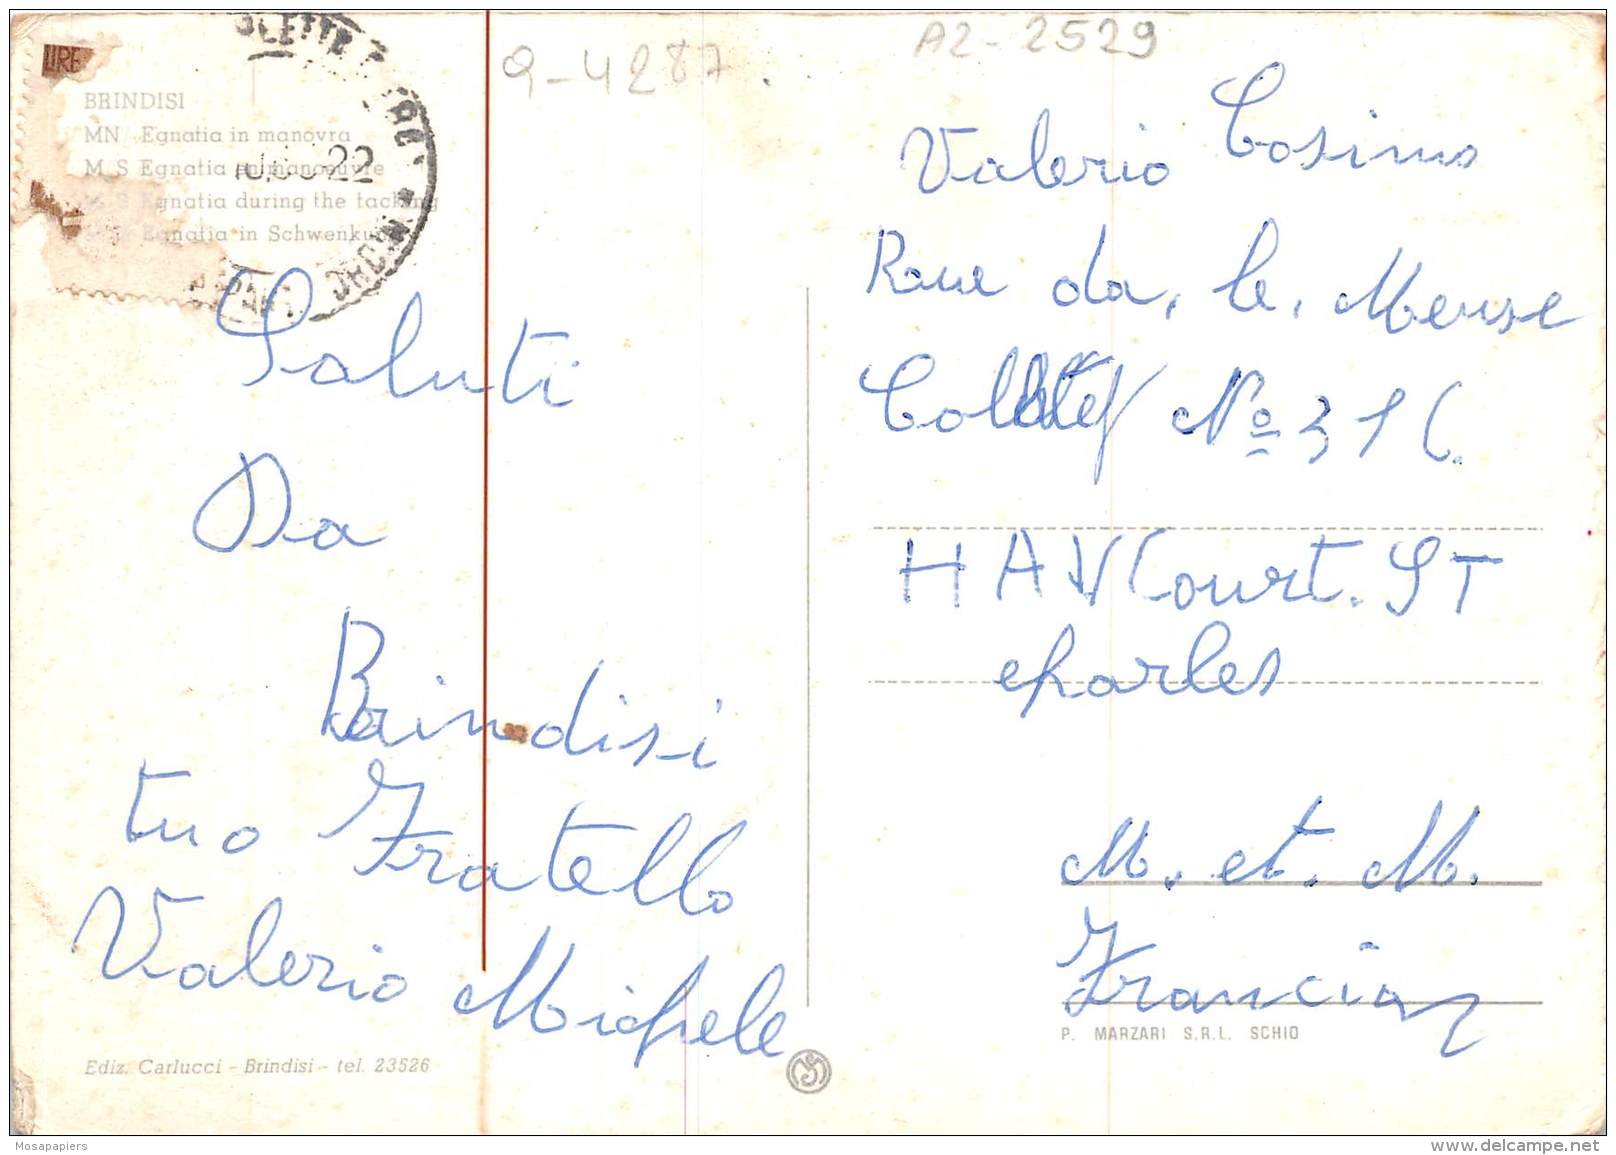 9-4287.
A2-2529
LIRE
BRINDISI
MN Egnatia in manovra
M S Egnatia en manoeuvre
M S Egnatia during the tacking
Egnatia in Schwenkung
22
Saluti
Da
Brindisi
tuo Fratello
Valerio Michele
Valerio Cosimo
Raue da, le, Meuse
No 316.
HAVCourt. ST
charles
M. et. M.
Francia
P. MARZARI S.R.L. SCHIO
Ediz. Carlucci - Brindisi - tel. 23526
Mosapapiers
delcampe.net